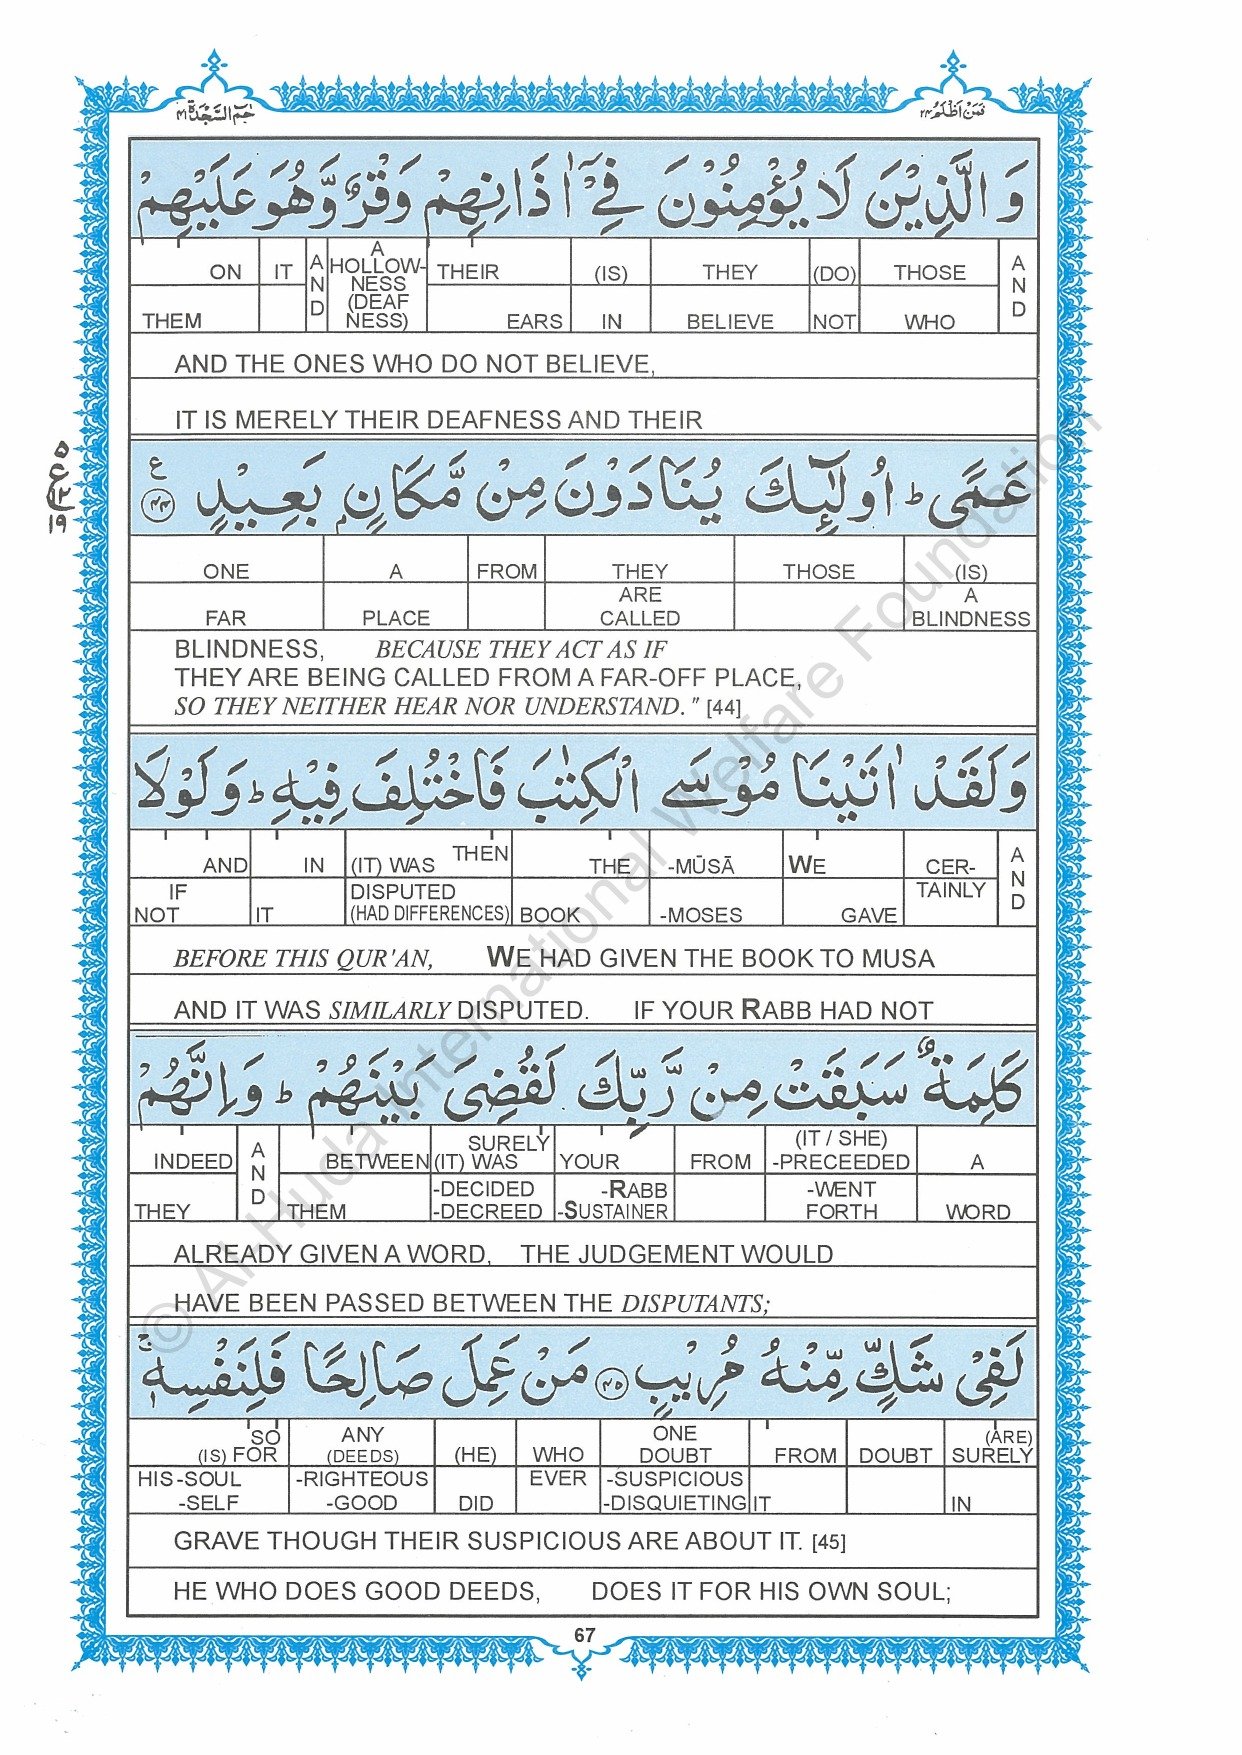 حٰمٓ السَّجْدَة ٤١
فَمَنْ اَظْلَمُ ٢٤
وَ الَّذِيْنَ لَا يُؤْمِنُوْنَ فِيْٓ اٰذَانِهِمْ وَقْرٌ وَّهُوَ عَلَيْهِمْ
ON IT AND A HOLLOW-NESS (DEAF NESS) THEIR (IS) THEY (DO) THOSE AND
THEM EARS IN BELIEVE NOT WHO
AND THE ONES WHO DO NOT BELIEVE,
IT IS MERELY THEIR DEAFNESS AND THEIR
عَمًى ؕ اُولٰٓئِكَ يُنَادَوْنَ مِنْ مَّكَانٍۭ بَعِيْدٍ ٤٤ ع
٥
ع
١٢
١٩
ONE A FROM THEY THOSE (IS)
FAR PLACE ARE CALLED A BLINDNESS
BLINDNESS, BECAUSE THEY ACT AS IF
THEY ARE BEING CALLED FROM A FAR-OFF PLACE,
SO THEY NEITHER HEAR NOR UNDERSTAND." [44]
وَلَقَدْ اٰتَيْنَا مُوْسَى الْكِتٰبَ فَاخْتُلِفَ فِيْهِ ؕ وَلَوْلَا
AND IN (IT) WAS THEN THE -MŪSĀ WE CER- AND
IF NOT IT DISPUTED (HAD DIFFERENCES) BOOK -MOSES GAVE TAINLY
BEFORE THIS QUR'AN, WE HAD GIVEN THE BOOK TO MUSA
AND IT WAS SIMILARLY DISPUTED. IF YOUR RABB HAD NOT
كَلِمَةٌ سَبَقَتْ مِنْ رَّبِّكَ لَقُضِيَ بَيْنَهُمْ ؕ وَاِنَّهُمْ
INDEED AND BETWEEN SURELY (IT) WAS YOUR FROM (IT / SHE) -PRECEEDED A
THEY THEM -DECIDED -DECREED -RABB -SUSTAINER -WENT FORTH WORD
ALREADY GIVEN A WORD, THE JUDGEMENT WOULD
HAVE BEEN PASSED BETWEEN THE DISPUTANTS;
لَفِيْ شَكٍّ مِّنْهُ مُرِيْبٍ ٤٥ مَنْ عَمِلَ صَالِحًا فَلِنَفْسِهٖ ۚ
SO (IS) FOR ANY (DEEDS) (HE) WHO ONE DOUBT FROM DOUBT (ARE) SURELY
HIS-SOUL -SELF -RIGHTEOUS -GOOD DID EVER -SUSPICIOUS -DISQUIETING IT IN
GRAVE THOUGH THEIR SUSPICIOUS ARE ABOUT IT. [45]
HE WHO DOES GOOD DEEDS, DOES IT FOR HIS OWN SOUL;
67
© Al-Huda International Welfare Foundation